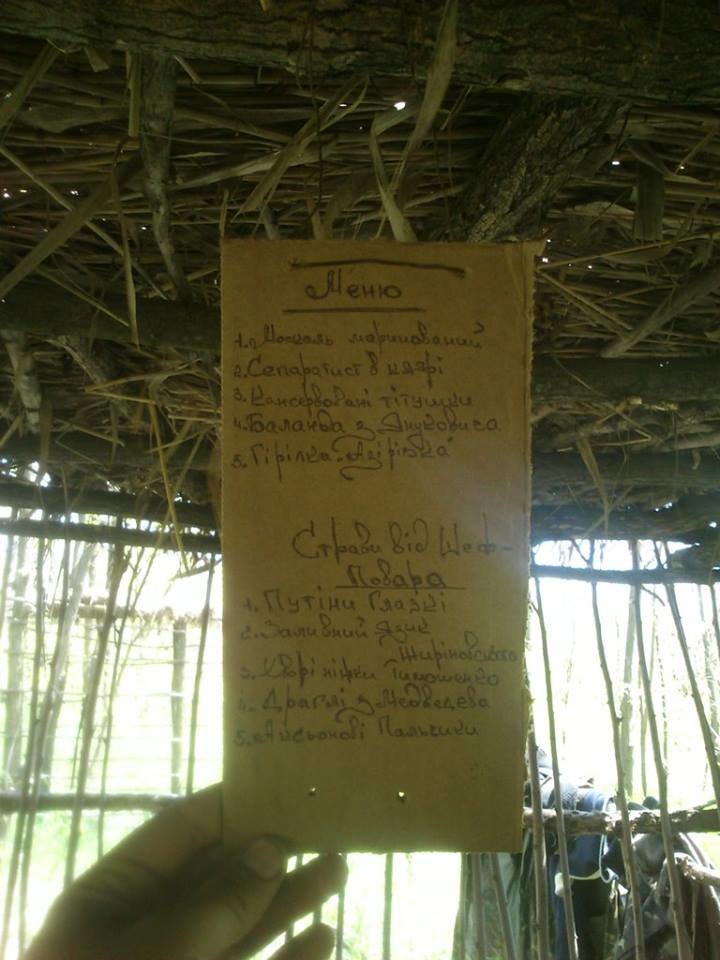 Меню
1. Москаль маринований
2. Сепаратист в клярі
3. Консервовані тітушки
4. Баланда з Януковиса
5. Гірілка "Азірівка"
Страви від Шеф-
Повара
1. Путіни Глазкі
2. Заливний Язик
Жириновського
3. Хворі ніжки Тимошенко
4. Драглі з Медведєва
5. Аксьонові Пальчики